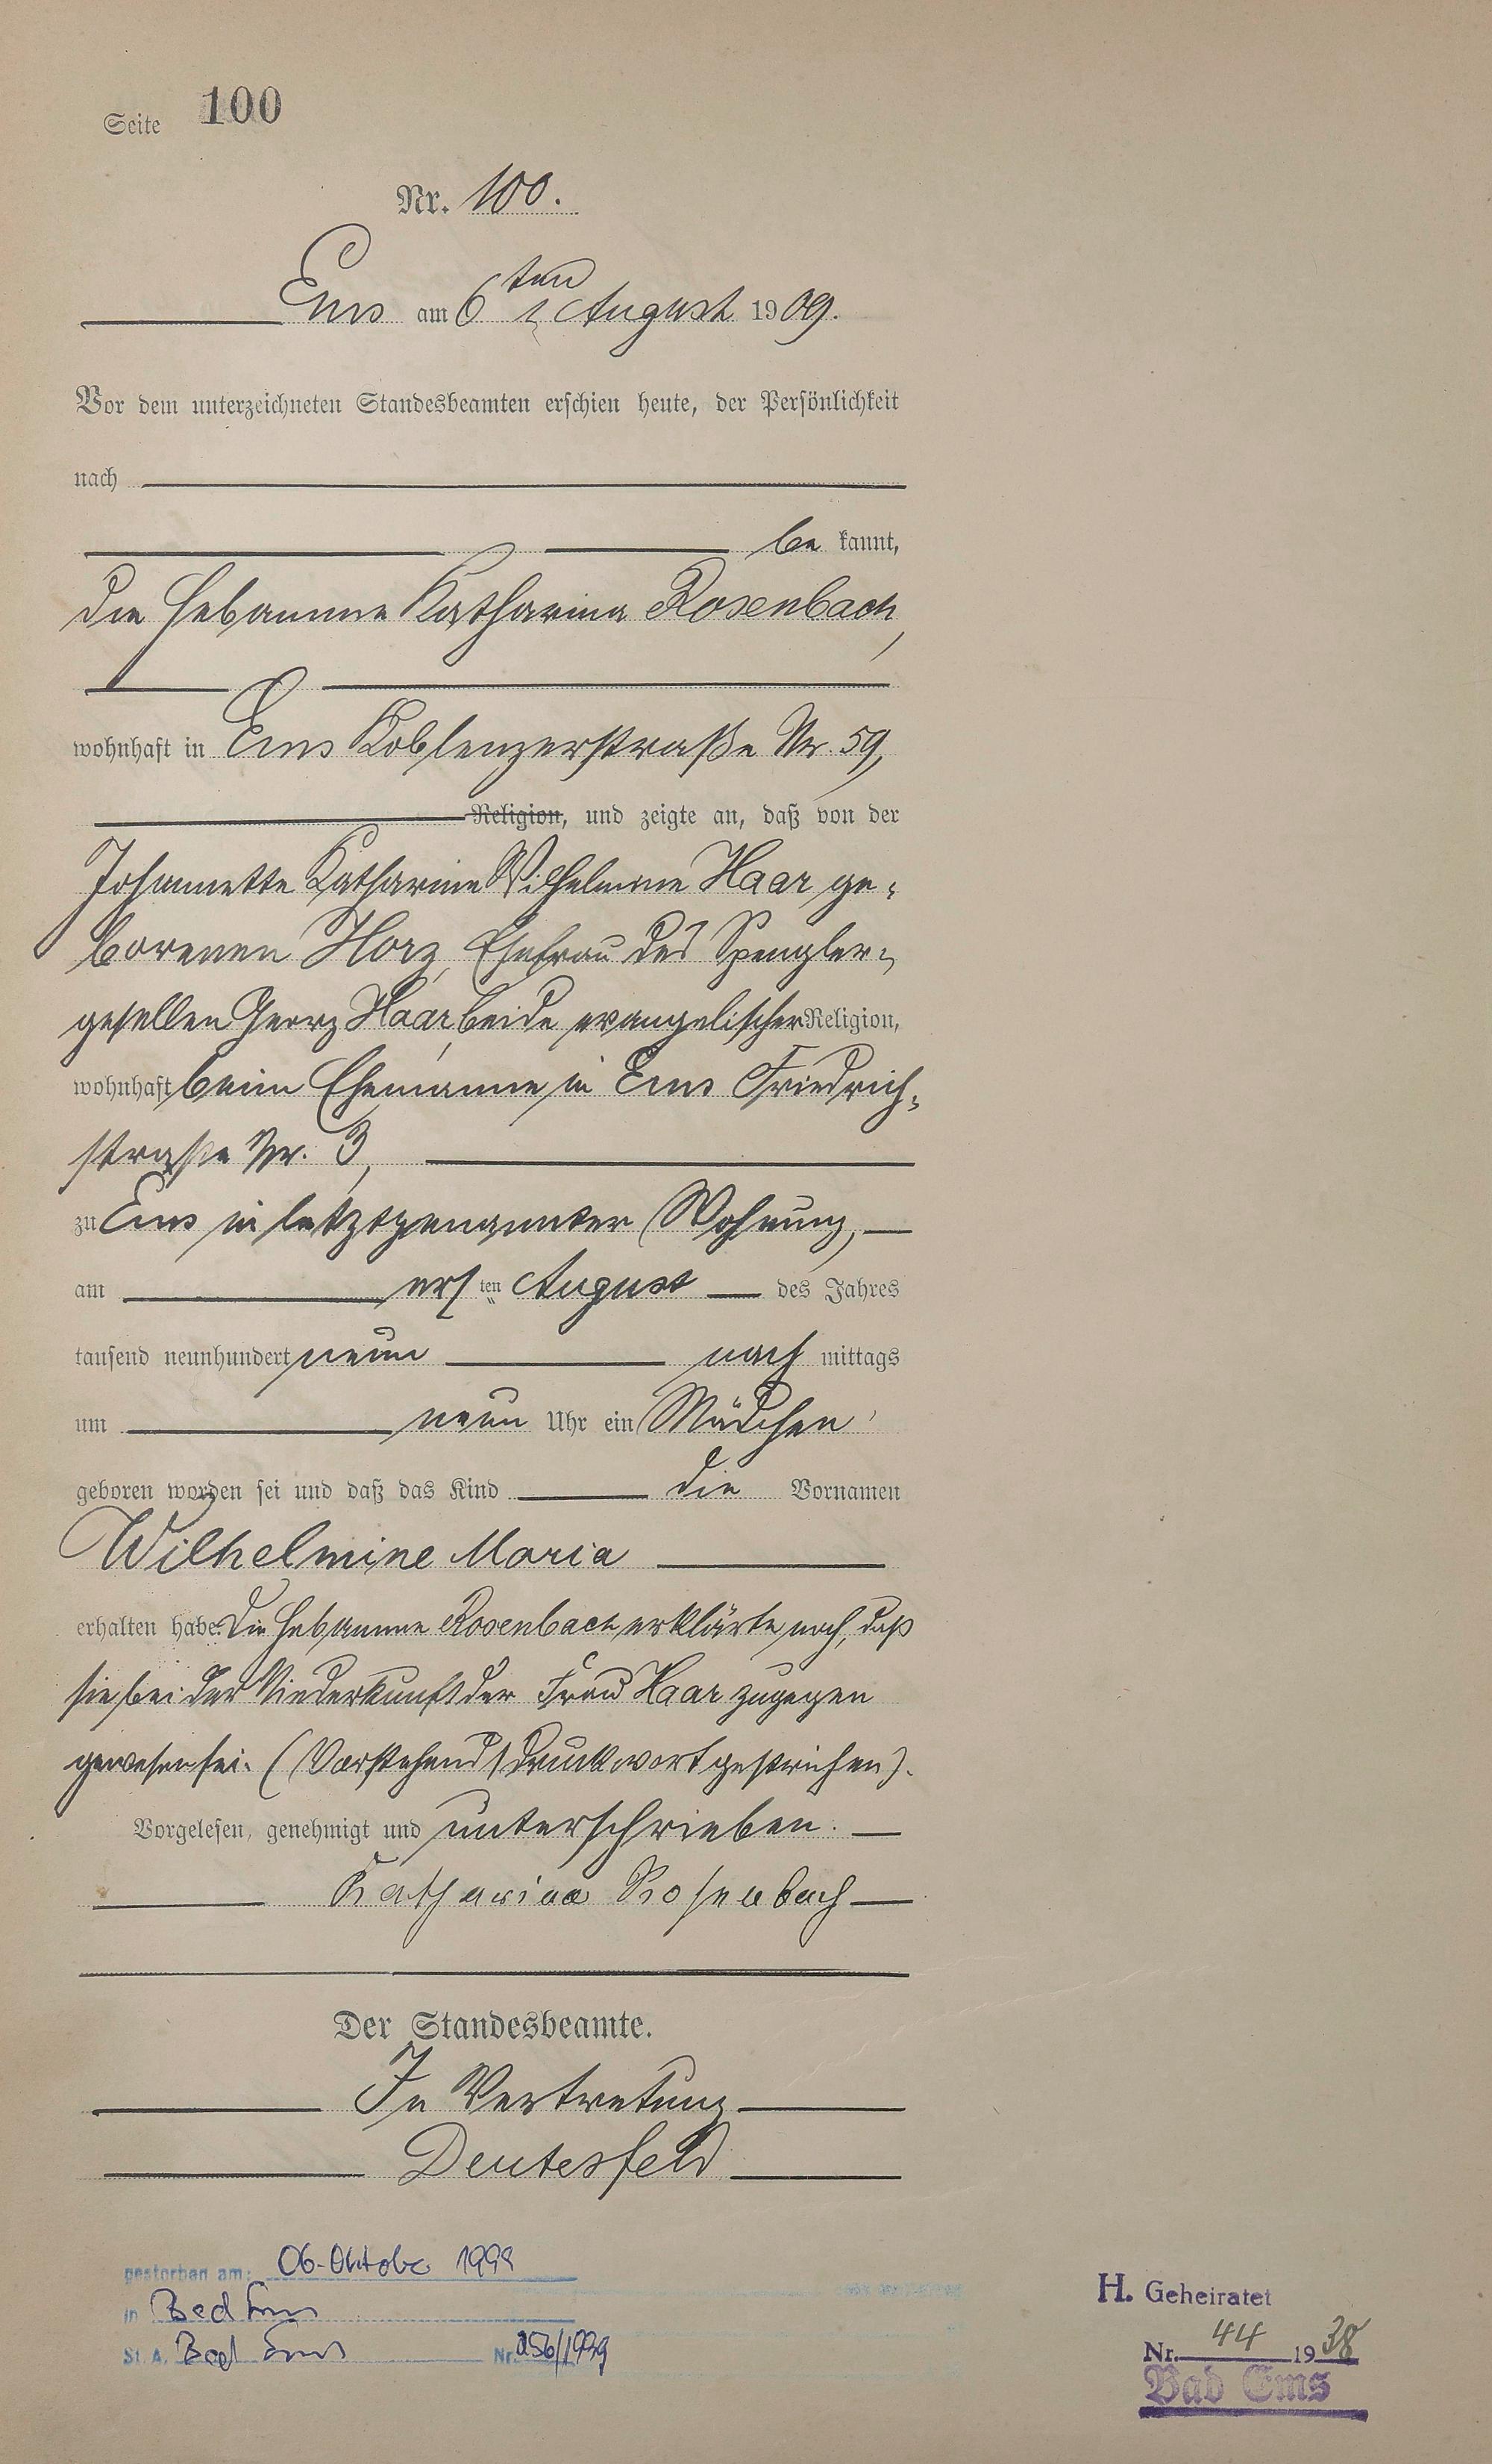 Seite 100
Nr. 100.
Ems am 6ten August 1909.
Vor dem unterzeichneten Standesbeamten erschien heute, der Persönlichkeit
nach
be kannt,
die Hebamme Katharina Rosenbach,
wohnhaft in Ems Koblenzerstraße Nr. 59,
Religion, und zeigte an, daß von der
Johannette Katharine Wilhelmine Haar ge-
borenen Horz, Ehefrau des Spengler-
gesellen Georg Haar, beide evangelischer Religion,
wohnhaft beim Ehemanne in Ems Friedrich-
straße Nr. 3,
zu Ems in letztgenannter Wohnung,
am ersten August des Jahres
tausend neunhundert neun nach mittags
um neun Uhr ein Mädchen
geboren worden sei und daß das Kind die Vornamen
Wilhelmine Maria
erhalten habe. Die Hebamme Rosenbach erklärte noch, daß
sie bei der Niederkunft der Frau Haar zugegen
gewesen sei. (Vorstehend 1 Druckwort gestrichen).
Vorgelesen, genehmigt und unterschrieben.
Katharina Rosenbach
Der Standesbeamte.
In Vertretung
Deutesfeld
gestorben am: 06. Oktober
in Bad Ems
St. A. Bad Ems Nr.
H. Geheiratet
Nr. 44 1938
Bad Ems